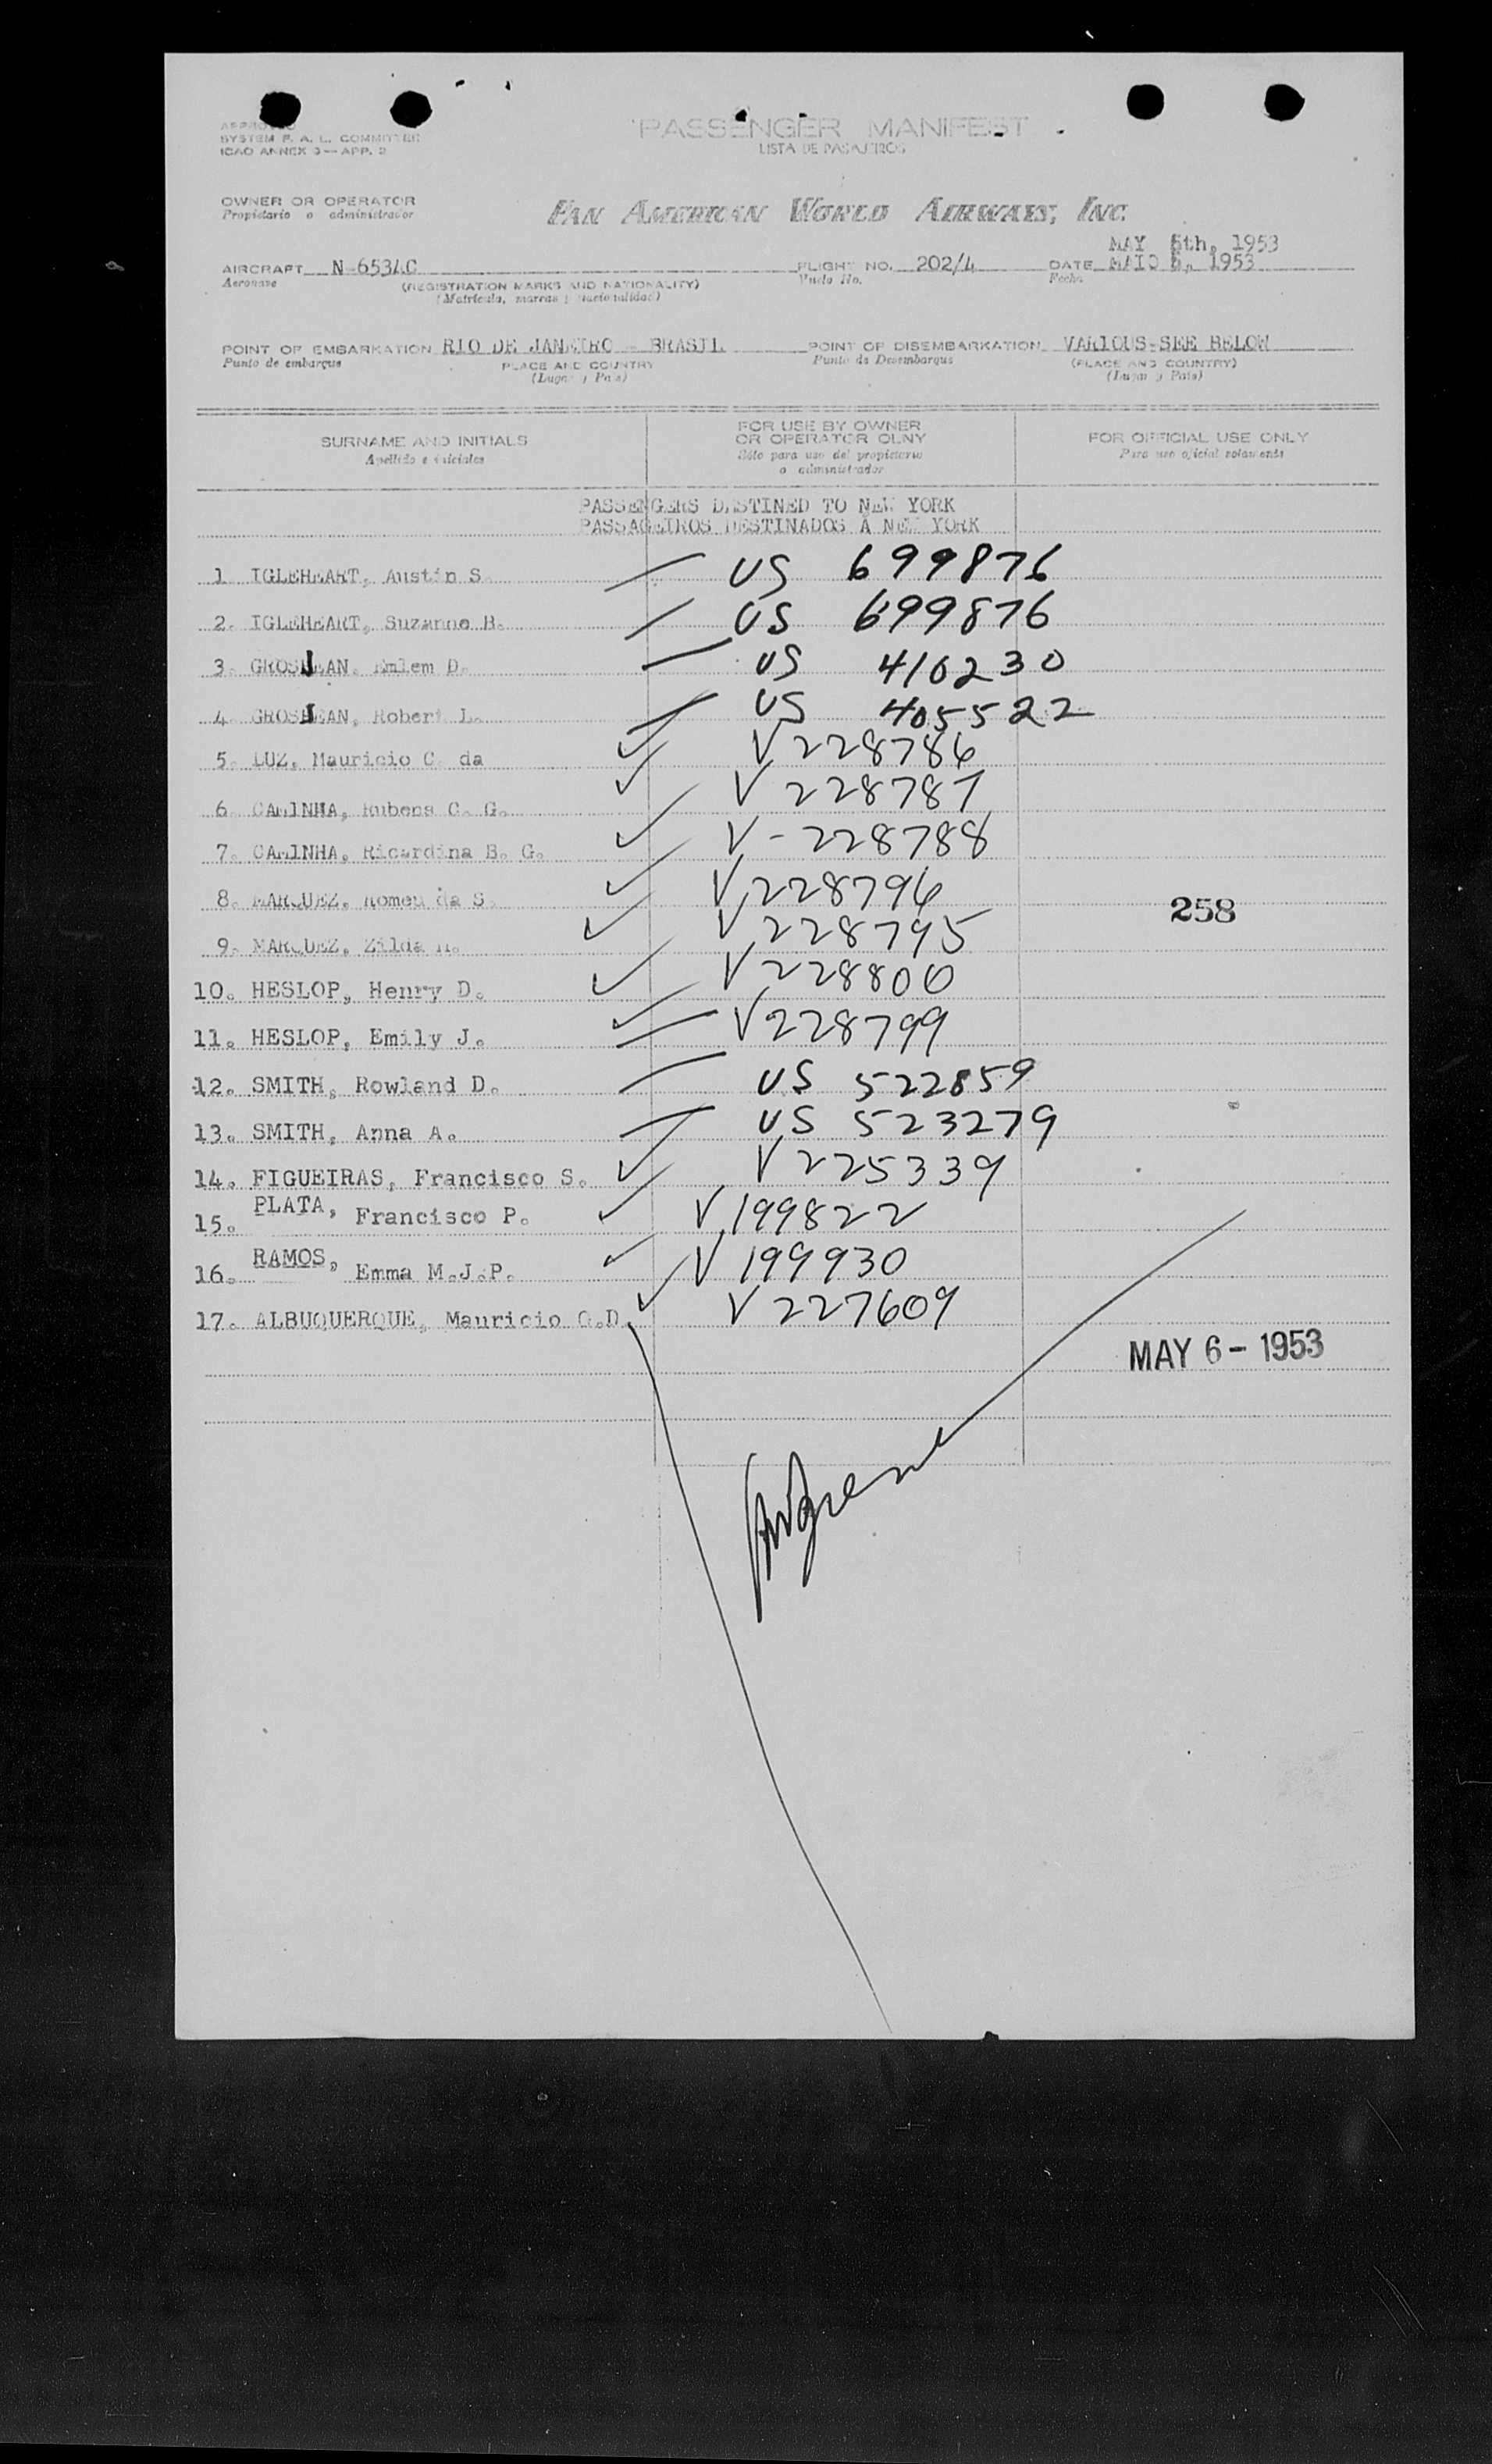 APPROVED
SYSTEM F. A. L. COMMITTEE
ICAO ANNEX 9 — APP. 2
PASSENGER MANIFEST
LISTA DE PASAJEROS
OWNER OR OPERATOR
Propietario o administrador
PAN AMERICAN WORLD AIRWAYS, INC.
MAY 5th, 1953
AIRCRAFT N-6534C FLIGHT NO. 202/4 DATE MAIO 5, 1953
Aeronave (REGISTRATION MARKS AND NATIONALITY) Vuelo No. Fecha
(Matrícula, marcas y nacionalidad)
POINT OF EMBARKATION RIO DE JANEIRO - BRASIL POINT OF DISEMBARKATION VARIOUS-SEE BELOW
Punto de embarque PLACE AND COUNTRY Punto de Desembarque (PLACE AND COUNTRY)
(Lugar y País) (Lugar y País)
SURNAME AND INITIALS FOR USE BY OWNER OR OPERATOR OLNY FOR OFFICIAL USE ONLY
Apellido e iniciales Sólo para uso del propietario o administrador Para uso oficial solamente
PASSENGERS DESTINED TO NEW YORK
PASSAGEIROS DESTINADOS Á NEW YORK
1. IGLEHEART, Austin S. US 699876
2. IGLEHEART, Suzanne H. US 699876
3. GROSJEAN, Emlem D. US 410230
4. GROSJEAN, Robert L. US 405522
5. LUZ, Mauricio C. da V 228786
6. CAMINHA, Rubens C. G. V 228787
7. CAMINHA, Ricardina B. G. V-228788
8. MARQUEZ, Romeu da S. V 228796
9. MARQUEZ, Zilda M. V 228795
10. HESLOP, Henry D. V 228800
11. HESLOP, Emily J. V 228799
12. SMITH, Rowland D. US 522859
13. SMITH, Anna A. US 523279
14. FIGUEIRAS, Francisco S. V 225339
15. PLATA, Francisco P. V 199822
16. RAMOS, Emma M.J.P. V 199930
17. ALBUQUERQUE, Mauricio G.D. V 227609
258
MAY 6 - 1953